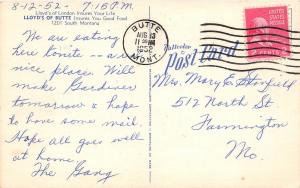 8-12-52 - 7:15 P.M.
Lloyd's of London Insures Your Life
LLOYD'S OF BUTTE Insures You Good Food
1201 South Montana
We are eating
here tonite - a
nice place. Will
make Gardener
tomorrow & hope
to have some mail.
Hope all goes well
at home.
The Gang
BUTTE
AUG 13
1952
MONT.
Post Card
2 CENTS 2
Mrs. Mary E.
512 North St
Farmington
Mo.